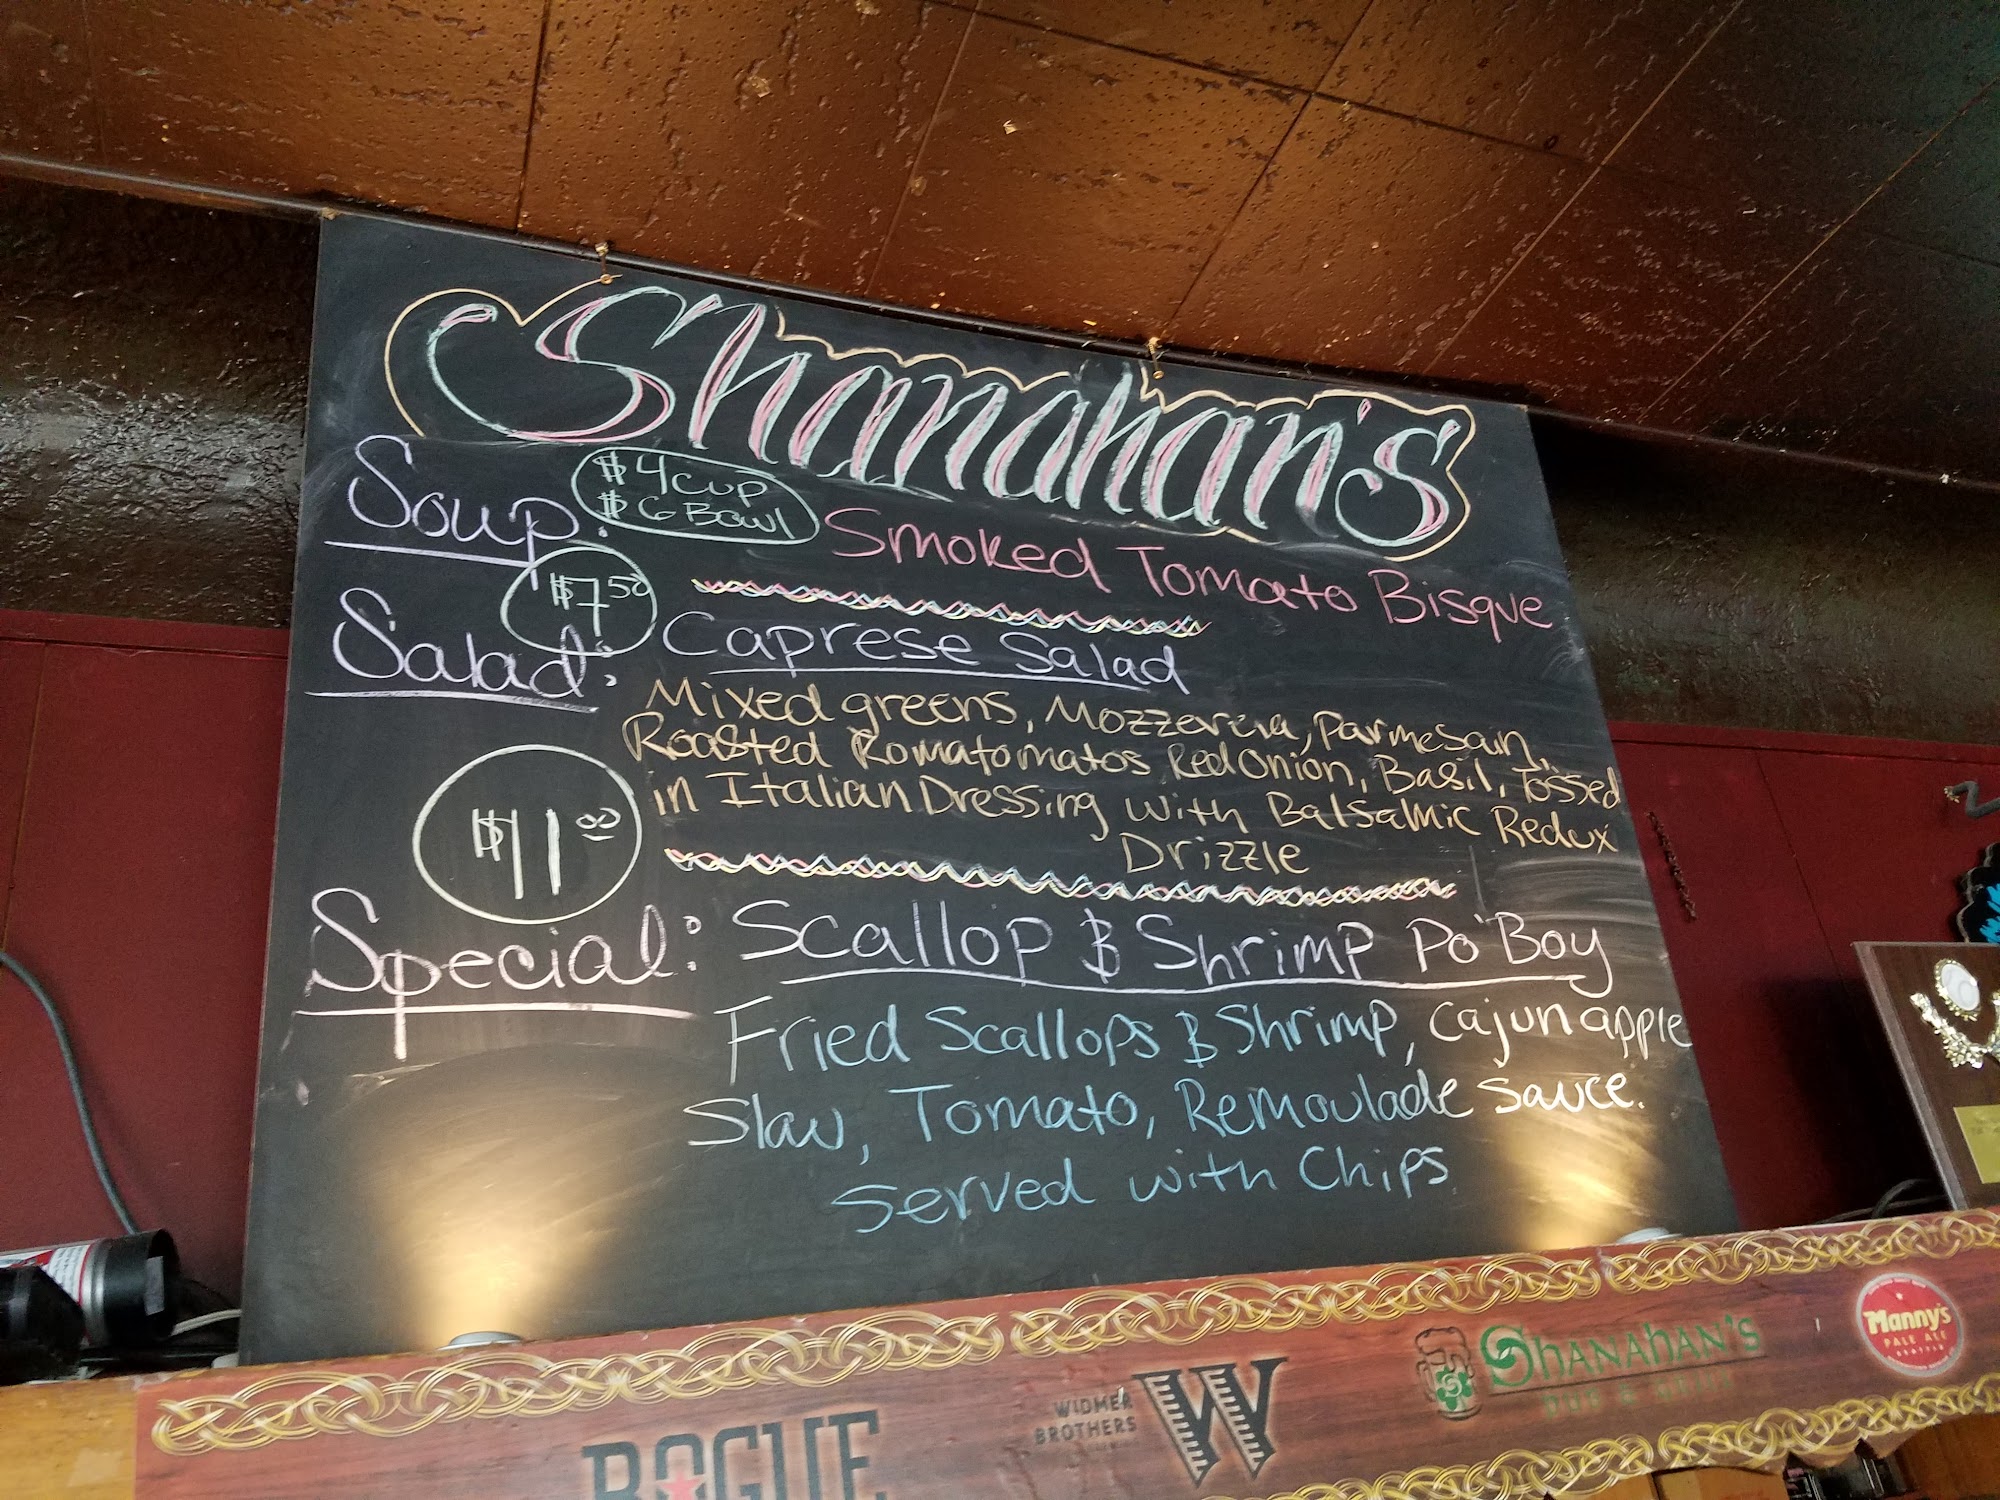 Shanahan's
Soup:
$4 cup
$6 Bowl
Smoked Tomato Bisque
$7.50
Salad:
Caprese Salad
Mixed greens, Mozzerela, Parmesan,
Roasted Romatomatos Red Onion, Basil, Tossed
in Italian Dressing with Balsalmic Redux
Drizzle
$11.00
Special:
Scallop & Shrimp Po'Boy
Fried Scallops & Shrimp, Cajun apple
Slaw, Tomato, Remoulade Sauce.
Served with Chips
ROGUE
WIDMER
BROTHERS
W
SHANAHAN'S
PUB & GRILL
Manny's
PALE ALE
SEATTLE